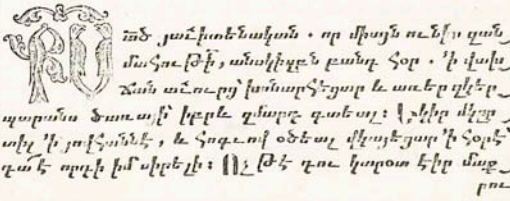 ՔՍ ած յաւիտենական . որ միայն ունիս զան
մահութի՛, անսկիզբն բանդ հօր . ՛ի վախ
ճան աւուրց խոնարհեցար և առեր զկեր
պարանս ծառայի՝ իբրև զմարդ գտեալ։ Եկիր մկըր
տիլ ՛ի յովհաննէ, և հոգւով օծեալ վկայեցար ՛ի հօրէ՝
դա՛ է որդի իմ սիրելի։ Ոչ թէ դու կարօտ էիր մաք
րու